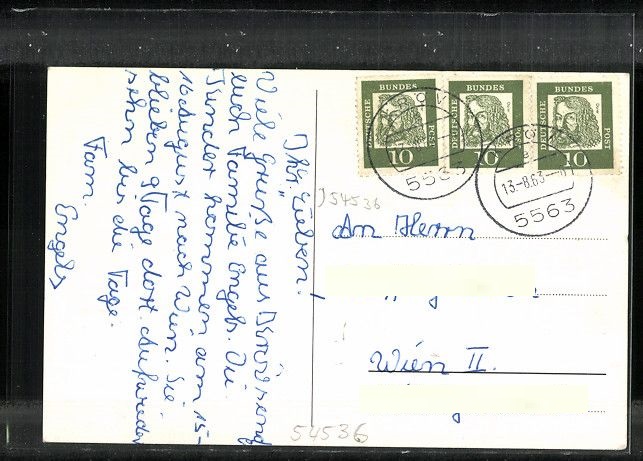 Ihr Lieben!
Viele Grüße aus
euch Familie Engels. Die
Kinder kommen am 15-
16 August nach Wien. Sie
bleiben 9 Tage dort. Aufwieder
sehn bis die Tage.
Fam.
Engels
DEUTSCHE BUNDES POST
10
DEUTSCHE BUNDES POST
10
DEUTSCHE BUNDES POST
10
13.-8.63
5563
54536
An Herrn
Wien II.
54536